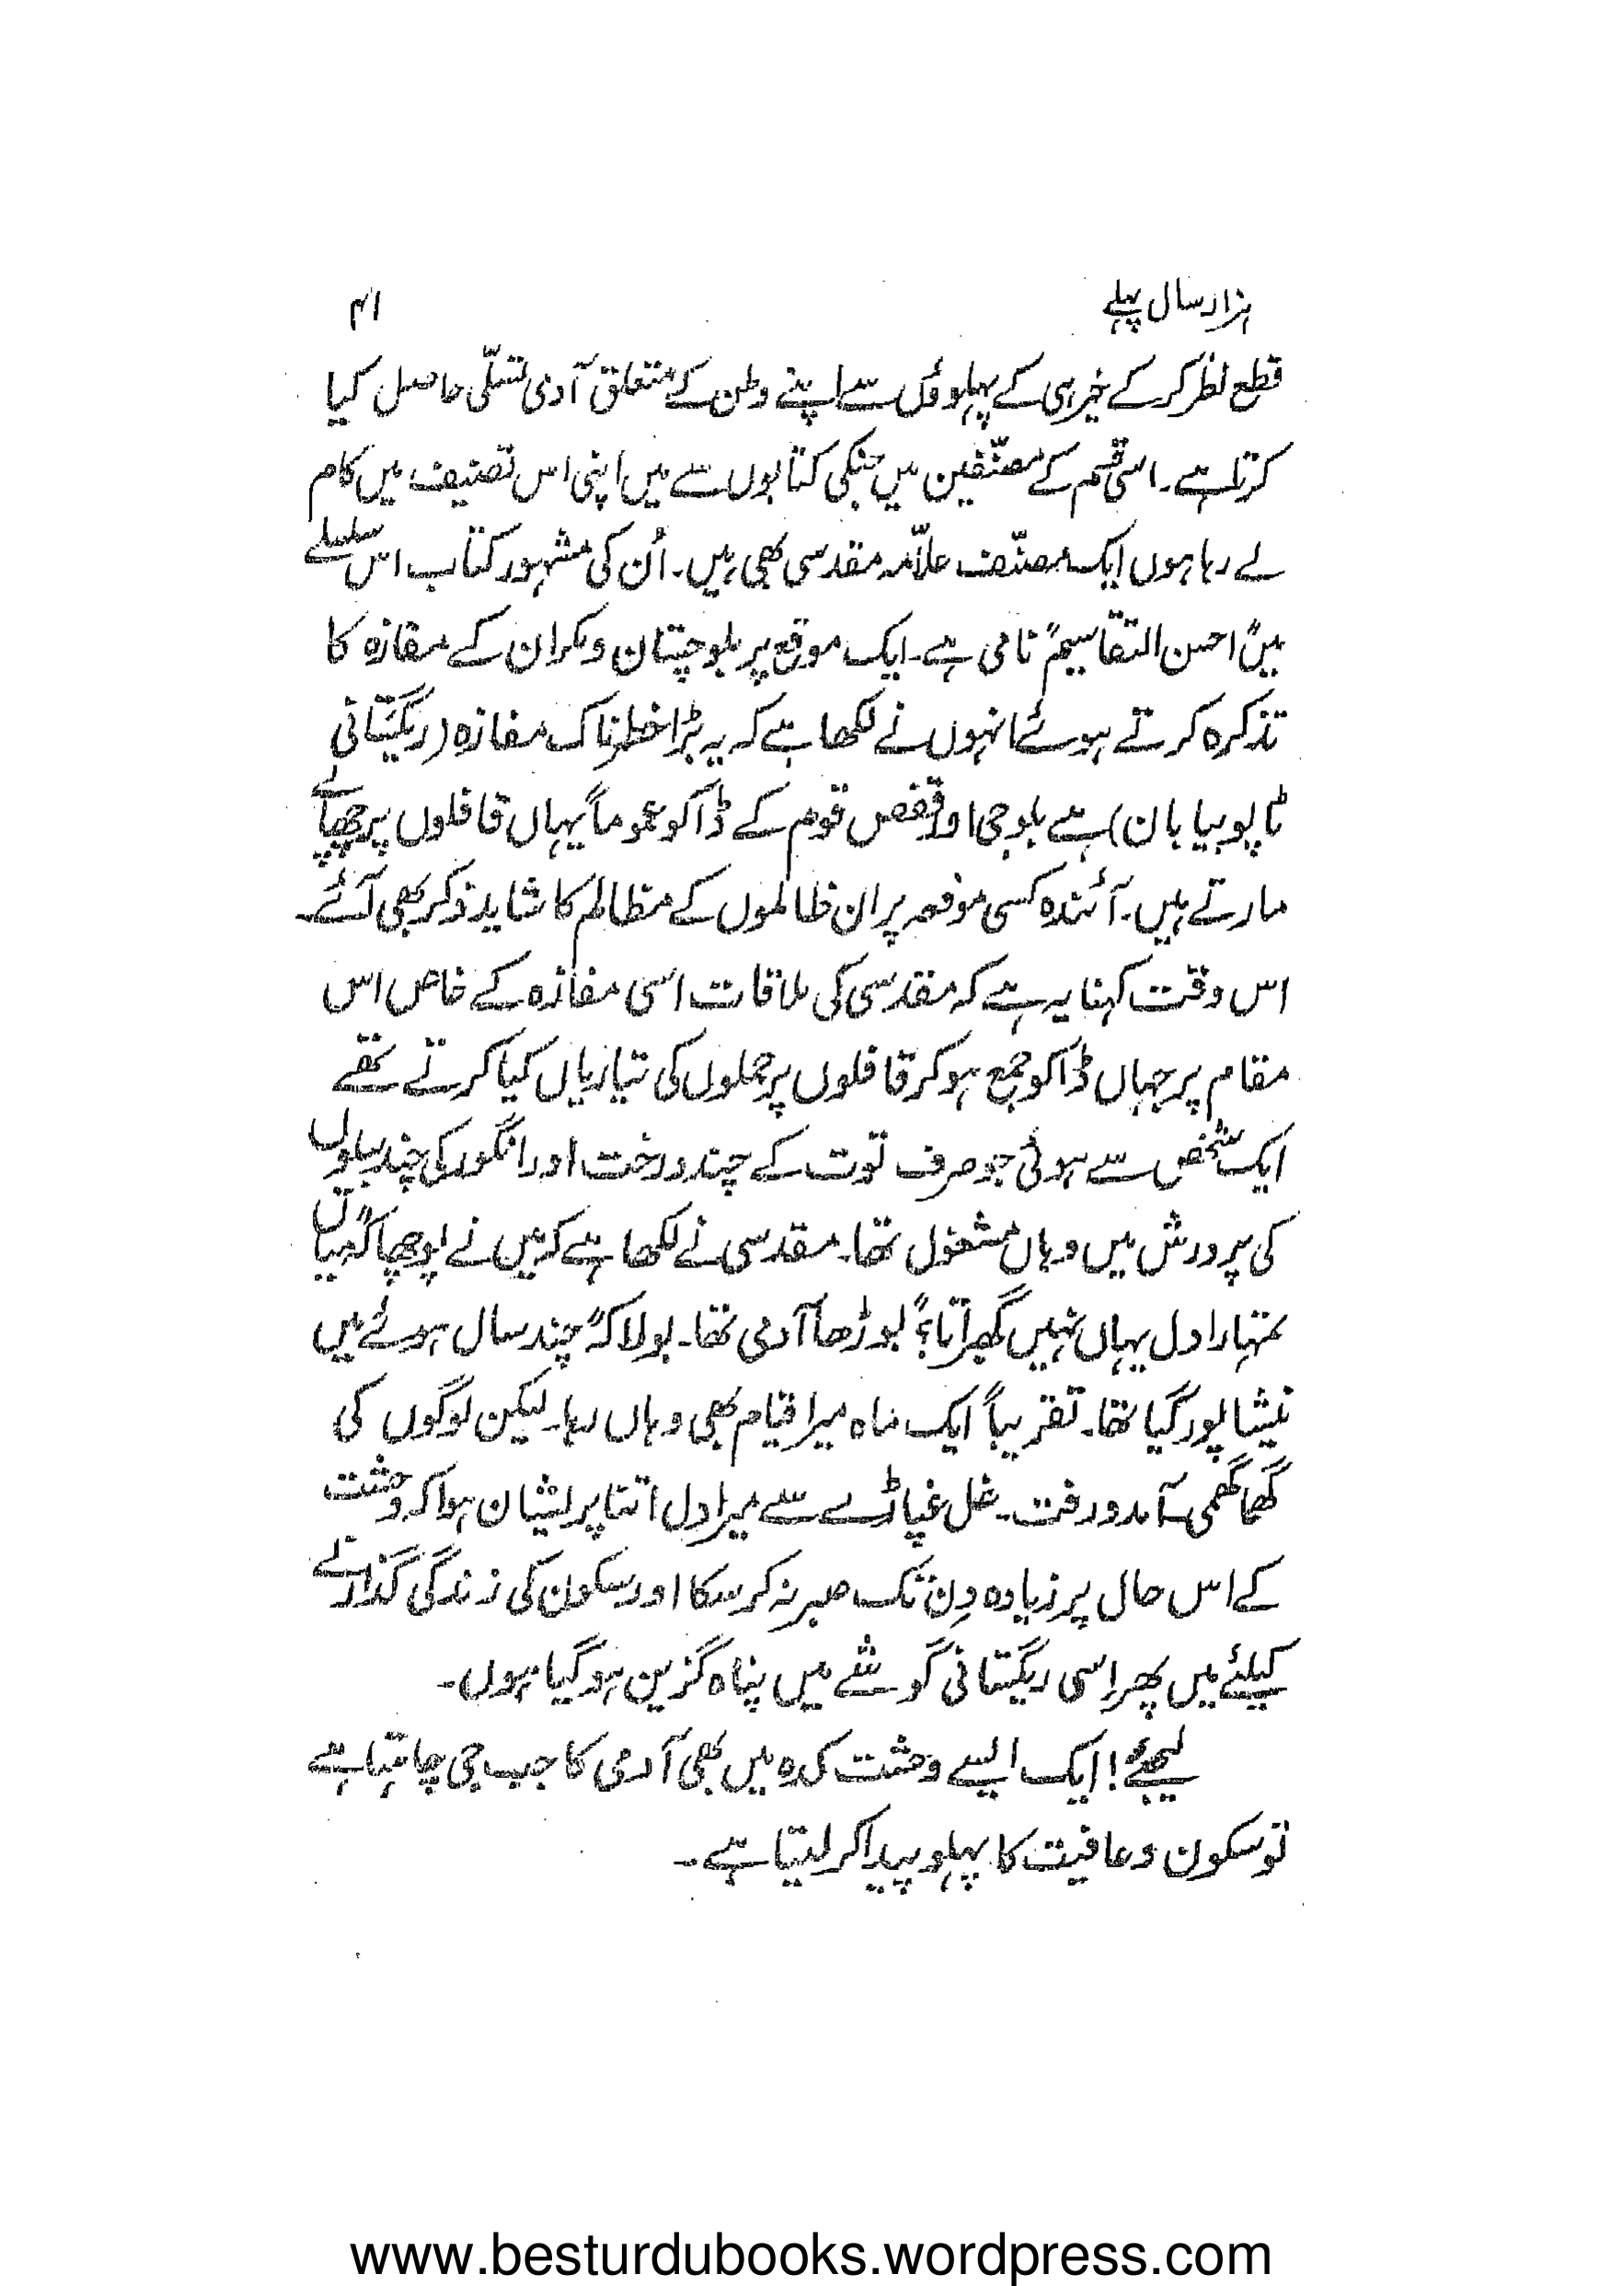 ہزار سال پہلے
۴۱
قطع نظر کرکے خیر ہی کے پہلوؤں سے اپنے وطن کے متعلق آدمی تسلّی حاصل کیا
کرتا ہے۔ اسی قسم کے مصنّفین میں جنکی کتابوں سے میں اپنی اس تصنیف میں کام
لے رہا ہوں ایک مصنّف علاّمہ مقدسی بھی ہیں۔ اُن کی مشہور کتاب اس سلسلے
میں "احسن التقاسیم" نامی ہے۔ ایک موقع پر بلوچستان و مکران کے مفازہ کا
تذکرہ کرتے ہوئے انہوں نے لکھا ہے کہ یہ بڑا خطرناک مفازہ (ریگستانی
ٹاپو بیابان) ہے بلوچی اور قفص قوم کے ڈاکو عموماً یہاں قافلوں پر چھاپے
مارتے ہیں۔ آئندہ کسی موقعہ پر ان ظالموں کے مظالم کا شاید ذکر بھی آئے۔
اس وقت کہنا یہ ہے کہ مقدسی کی ملاقات اسی مفازہ کے خاص اس
مقام پر جہاں ڈاکو جمع ہوکر قافلوں پر حملوں کی تیاریاں کیا کرتے تھے
ایک شخص سے ہوئی جو صرف توت کے چند درخت اور انگور کی چند بیلوں
کی پرورش میں وہاں مشغول تھا۔ مقدسی نے لکھا ہے کہ میں نے پوچھا کہ "میاں
تمہارا دل یہاں نہیں گھبراتا؟" بوڑھا آدمی تھا۔ بولا کہ "چند سال ہوئے میں
نیشاپور گیا تھا۔ تقریباً ایک ماہ میرا قیام بھی وہاں رہا۔ لیکن لوگوں کی
گھما گھمی۔ آمد و رفت۔ غل غپاڑے سے میرا دل اتنا پریشان ہوا کہ وحشت
کے اس حال پر زیادہ دِن تک صبر نہ کرسکا اور سکون کی زندگی گذارنے
کیلئے میں پھر اِسی ریگستانی گوشے میں پناہ گزین ہوگیا ہوں۔
لیجئے! ایک ایسے وحشت کدہ میں بھی آدمی کا جب جی چاہتا ہے
تو سکون و عافیت کا پہلو پیدا کرلیتا ہے۔
www.besturdubooks.wordpress.com